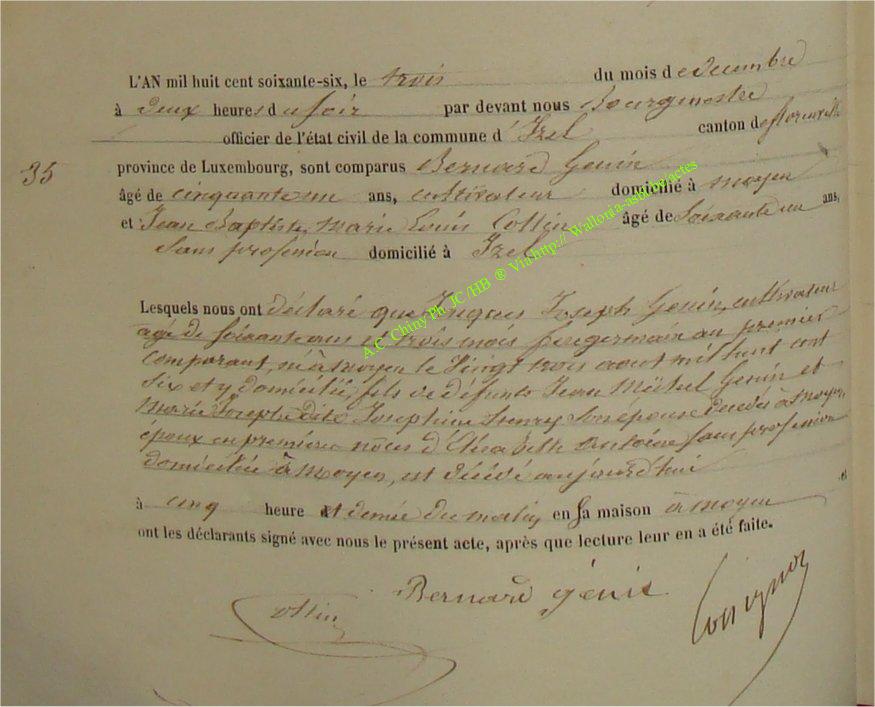 L'AN mil huit cent soixante-six, le trois du mois de decembre
à deux heures du soir par devant nous Bourgmestre
officier de l'état civil de la commune d'Izel canton de florenville
35
province de Luxembourg, sont comparus Bernard Genin
âgé de cinquante un ans, cultivateur domicilié à moyen
et Jean Baptiste Marie Louis Collin âgé de soixante un ans,
sans profession domicilié à Izel
A.C. Chiny Ph. JC /HB ® Via http:// Wallonia-asbl.org/actes
Lesquels nous ont déclaré que Jacques Joseph Genin, cultivateur
agé de soixante ans et trois mois germain au premier
comparant, né à moyen le vingt trois aout mil huit cent
six et y domicilié, fils de défunts Jean Michel Genin et
Marie Josephe dite Josephine Henry son épouse décédés à moyen
époux en premières noces d'Elisabeth Antoine sans profession
domiciliée à moyen, est décédé aujourd'hui
à cinq heure et demie du matin, en sa maison à moyen et
ont les déclarants signé avec nous le présent acte, après que lecture leur en a été faite.
Bernard génin
Collin